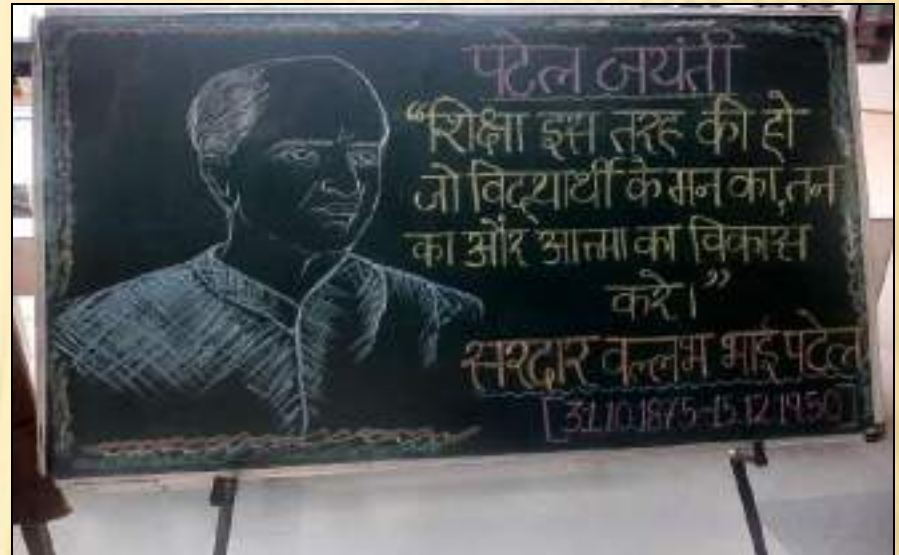 पटेल जयंती
“शिक्षा इस तरह की हो
जो विद्यार्थी के मन का, तन
का और आत्मा का विकास
करे।”
सरदार वल्लभ भाई पटेल
[31.10.1875-15.12.1950]